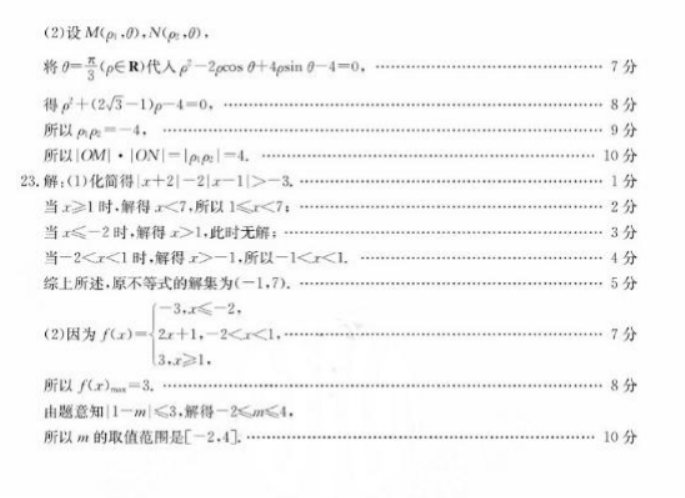 (2)设 M(ρ₁,θ),N(ρ₂,θ),
将 θ=π/3(ρ∈R)代入 ρ²-2ρcos θ+4ρsin θ-4=0, ………… 7 分
得 ρ²+(2√3-1)ρ-4=0, ………… 8 分
所以 ρ₁ρ₂=-4, ………… 9 分
所以|OM|·|ON|=|ρ₁ρ₂|=4. ………… 10 分
23.解:(1)化简得|x+2|-2|x-1|>-3. ………… 1 分
当 x≥1 时,解得 x<7,所以 1≤x<7; ………… 2 分
当 x≤-2 时,解得 x>1,此时无解; ………… 3 分
当-2<x<1 时,解得 x>-1,所以-1<x<1. ………… 4 分
综上所述,原不等式的解集为(-1,7). ………… 5 分
(2)因为 f(x)={-3,x≤-2,
2x+1,-2<x<1, ………… 7 分
3,x≥1,
所以 f(x)max=3. ………… 8 分
由题意知|1-m|≤3,解得-2≤m≤4,
所以 m 的取值范围是[-2,4]. ………… 10 分